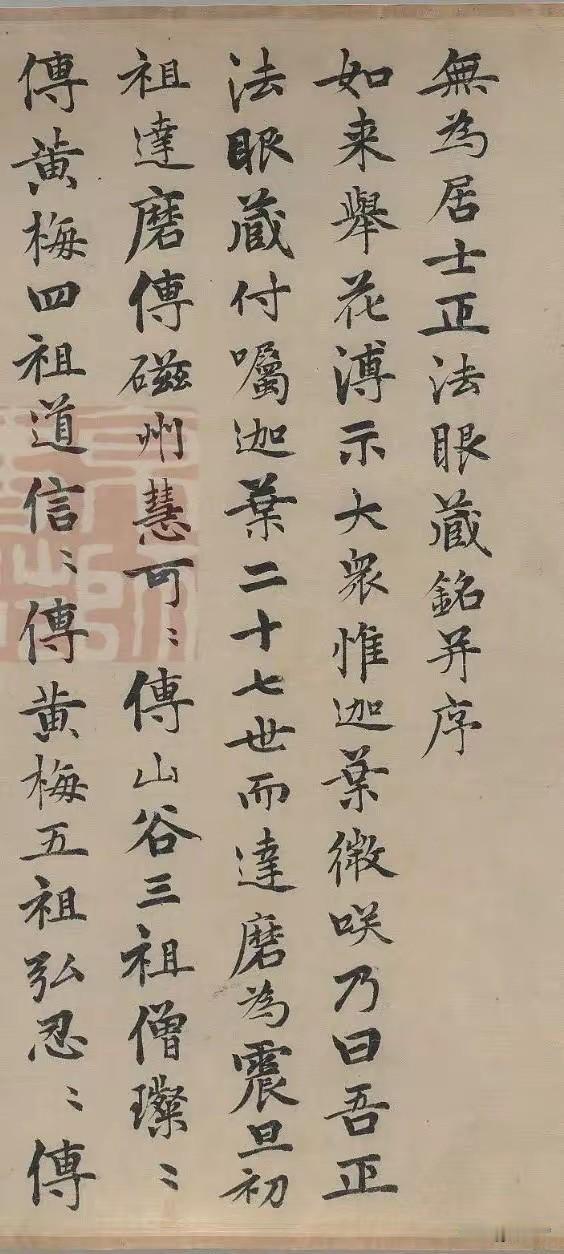 無為居士正法眼蔵銘并序
如来舉花溥示大衆惟迦葉微咲乃曰吾正
法眼蔵付囑迦葉二十七世而達磨為震旦初
祖達磨傳磁州慧可〻傳山谷三祖僧璨〻
傳黄梅四祖道信〻傳黄梅五祖弘忍〻傳